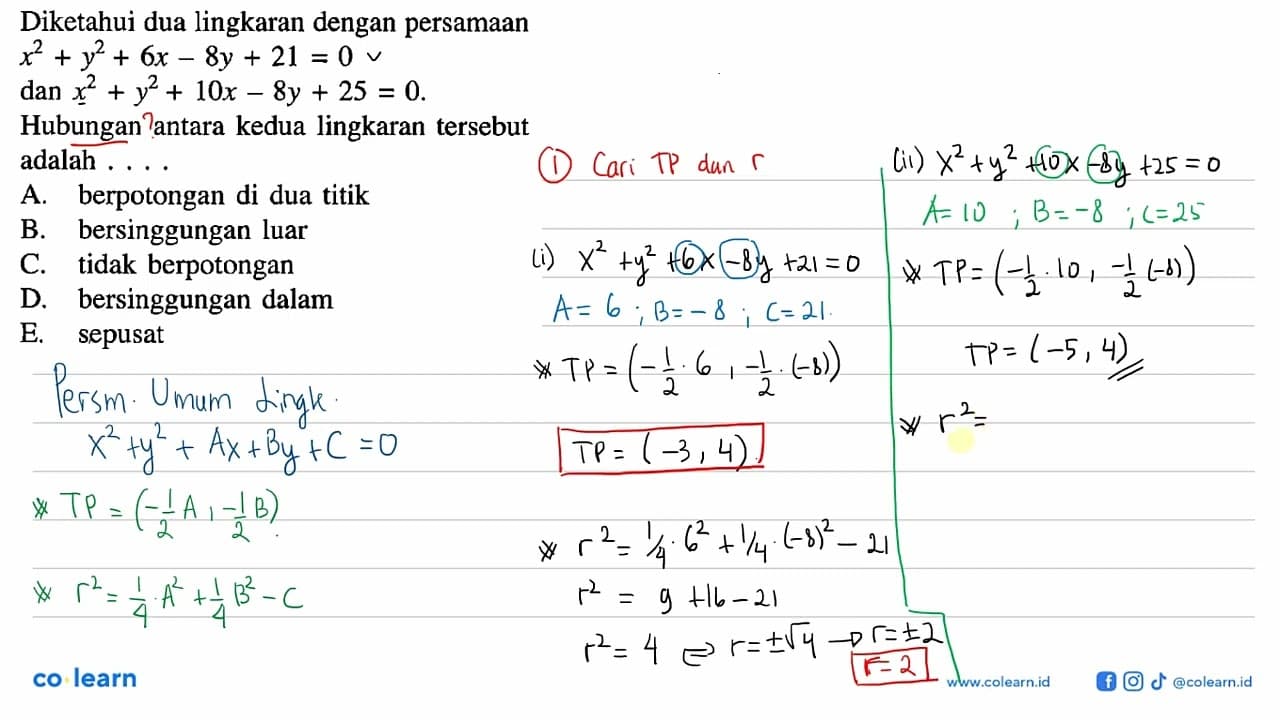 Diketahui dua lingkaran dengan persamaan
x² + y² + 6x − 8y + 21 = 0
dan x² + y² + 10x − 8y + 25 = 0.
Hubungan? antara kedua lingkaran tersebut
adalah . . . .
A. berpotongan di dua titik
B. bersinggungan luar
C. tidak berpotongan
D. bersinggungan dalam
E. sepusat
Persm. Umum Lingk.
x² + y² + Ax + By + C = 0
* TP = (-1/2 A, -1/2 B)
* r² = 1/4 . A² + 1/4 B² − C
① Cari TP dan r
(i) x² + y² + 6x − 8y + 21 = 0
A = 6 ; B = −8 ; C = 21.
* TP = (-1/2 . 6, -1/2 . (-8))
TP = (−3, 4)
* r² = 1/4 . 6² + 1/4 . (-8)² − 21
r² = 9 + 16 − 21
r² = 4 ⇔ r = ±√4 → r = ±2
r = 2
(ii) x² + y² + 10x − 8y + 25 = 0
A = 10 ; B = −8 ; C = 25
* TP = (-1/2 . 10, -1/2 (-8))
TP = (−5, 4)
* r² =
co learn
www.colearn.id
@colearn.id